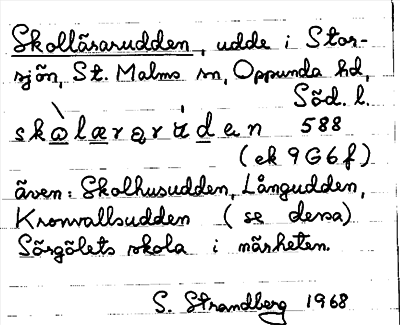 Skollärarudden, udde i Stor-
sjön, St. Malms sn, Oppunda hd,
Söd. l.
skòlærarúden 588
(ek 9G6f)
även: Skolhusudden, Långudden,
Kronvallsudden (se dessa)
Sörgölets skola i närheten.
S. Strandberg 1968